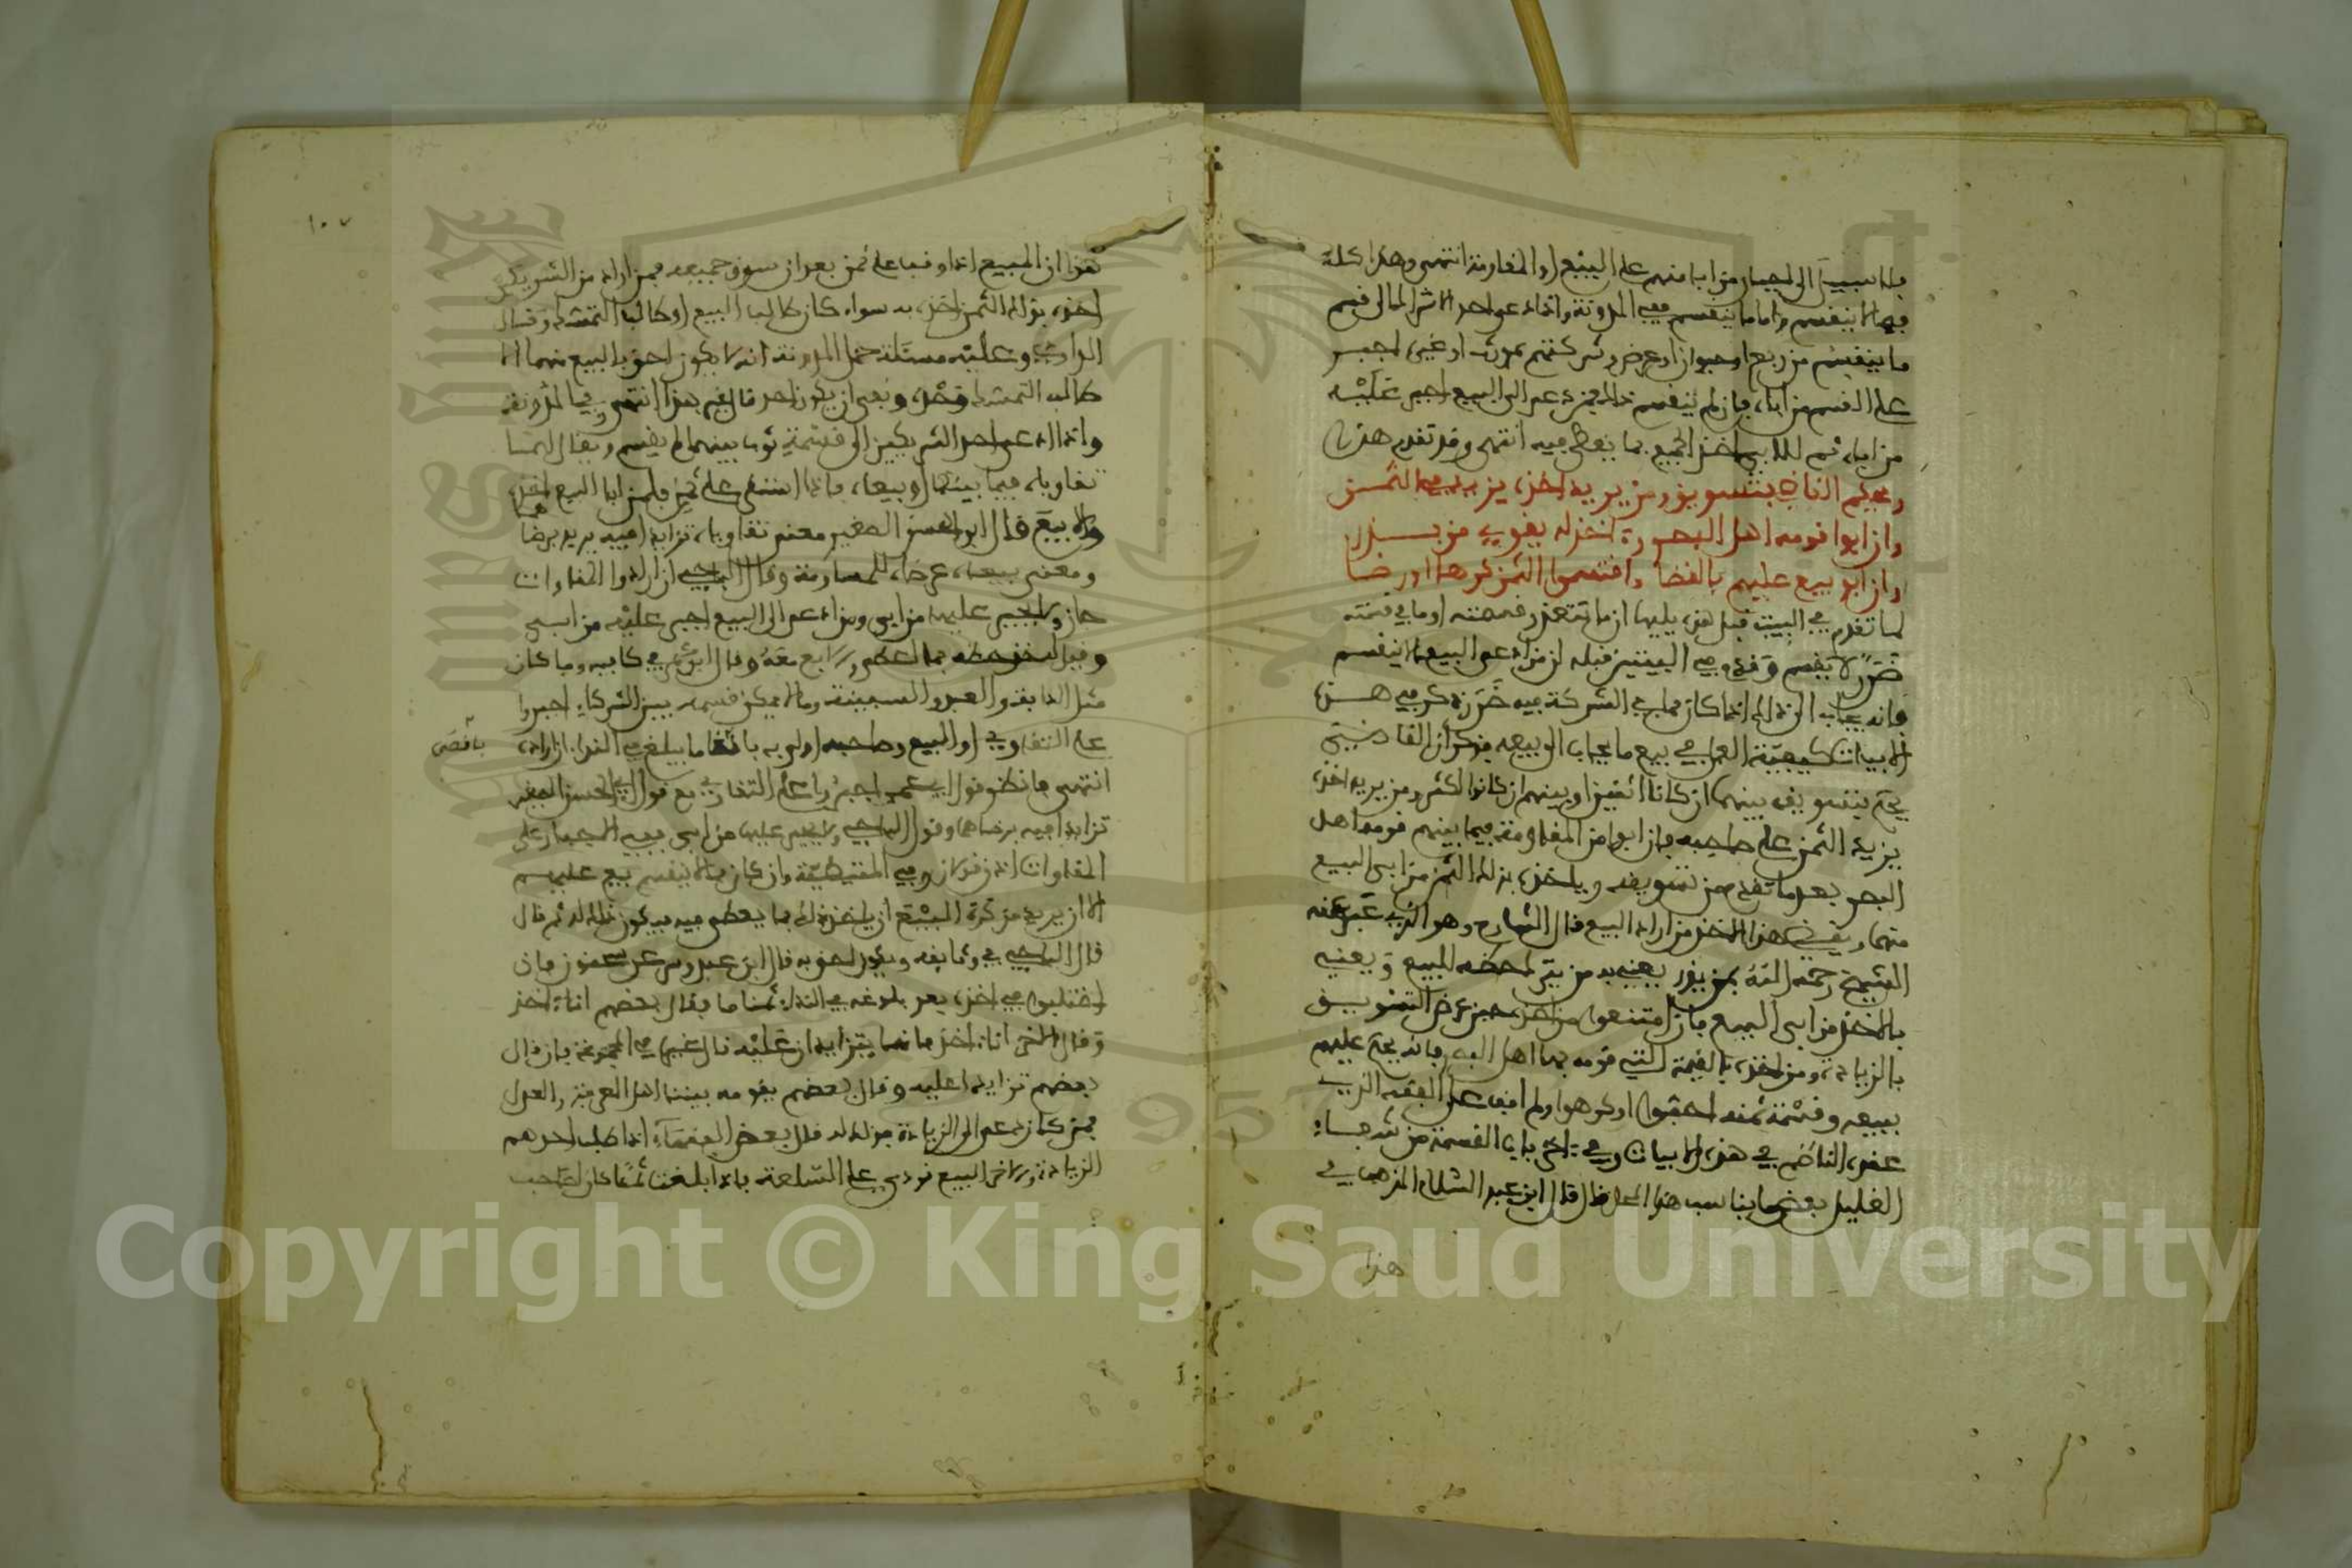 فلا سبيل الى اجبار من ابا منهم على البيع او المقاومة انتهى وهذا كله
فيما لا ينقسم واما ما ينقسم ففي المدونة واذا دعى احد الاشراك الى قسم
ما ينقسم من ربع او حيوان او عرض وشركتهم بمورث او غيره اجبر
على القسم من اباه فان لم ينقسم ذلك فمن دعى الى البيع اجبر عليه
من اباه ثم للابي اخذ الجميع بما يعطى فيه انتهى وقد تقدم هذا
ويحكم القاضي بتسويق ومن يريد اخذه يزيد في الثمن
وان ابوا قومه اهل البصر واخذ له يقوي من يبذر
وان ابو بيع عليهم بالقضا واقتسموا الثمن كرها او رضا
لما تقدم في البيت قبل هذه يليها ان ما تتعذر قسمته او ما في قسمته
ضرر لا يقسم وفي البيتين قبله ان من دعى البيع ما لا ينقسم
فانه يجاب الى ذلك اذا كان مما في الشركة فيه ضرر ذكر في هذه
الابيات كيفية العمل في بيع ما يجاب الى بيعه فذكر ان القاضي
يحكم بتسويقه بينهما ان كانا اثنين او بينهم ان كانوا اكثر ومن يريد اخذه
يزيد في الثمن على صاحبه فان ابوا من المقاومة فيما بينهم قومه اهل
البصر بعد ما تقدم من تسويقه وياخذه بذلك الثمن من ابى البيع
منهما ويقضى هذا الاخذ من اراد البيع قال الشارح وهو الذي عبر عنه
الشيخ رحمه الله بمن يذر يعني به من يترك حضه للبيع ويعني
بالاخذ من ابى البيع فان امتنعوا من اخذه حين عرض التسويق
بالزيادة ومن اخذه بالقيمة التي قومه بها اهل البصر فانه يحكم عليهم
ببيعه وقسمة ثمنه احبوا او كرهوا ولم اقف على الفقه الذي
عقده الناظم في هذه الابيات وفي اخر باب القسمة من شرحه
القليل بعض ما يناسب هذا المعنى قال ابن عبد السلام المذهب في
هذا
١٠٧
هذا ان المبيع اذا وقف على ثمن بعد ان سوق جميعه فمن اراد من الشريكين
اخذه بذلك الثمن اخذه به سواء كان طالب البيع او طالب التمسك وقال
الداودي وعليه مسئلة حمل المدونة انه لا يكون احق بالبيع منهما الا
طالب التمسك فقط ونفى ان يكون احد قال غير هذا انتهى وفي المدونة
واذا دعى احد الشريكين الى قسمة ثوب بينهما لم يقسم ويقال لهما
تقاوياه فيما بينكما او بيعاه فاذا استقر على ثمن فلمن ابا البيع اخذه
والا بيع قال ابو الحسن الصغير معنى تقاوياه تزايدا فيه يريد برضاهما
ومعنى بيعاه عرضاه للمساومة وقال الباجي ان ارادوا المقاوات
جاز ولا يجبر عليها من ابى ومن دعى الى البيع اجبر عليه من ابى
وقيل اخذ حظه بما اعطى ولا يبيع معه وقال ابن في كافيه وما كان
مثل الدابة والعبد والسفينة وما لا يمكن قسمه بين الشركاء اجبروا
على التقاوي او البيع وصاحبه اولى به باقصا ما يبلغ في النداء ان اراده
باقصى
انتهى فانظر قول ابي عمر اجبروا على التقاوي مع قول ابي الحسن الصغير
تزايدا فيه برضاهما وقول الباجي ولا يجبر عليها من ابى ففي الاجبار على
المقاوات اذن قولان وفي المتيطية وان كان مما لا ينقسم بيع عليهم
الا ان يريد من كره البيع ان ياخذ ذلك بما يعطى فيه فيكون ذلك له ثم قال
قال الباجي في وثائقه ويكون احق به قال ابن عبدوس عن سحنون فان
اختلفوا في اخذه بعد بلوغه في النداء ثمنا ما فقال بعضهم انا اخذ
وقال الاخر انا اخذ فانهما يتزايدان عليه قال غيره في المجموعة فان قال
بعضهم تزايدا عليه وقال بعضهم يقومه بيننا اهل المعرفة والعدل
فمن كان دعى الى الزيادة فذلك له قال بعض الفقهاء اذا طلب احدهم
الزيادة والاخر البيع نودي على السلعة فاذا بلغت ثمنا كان لصاحب